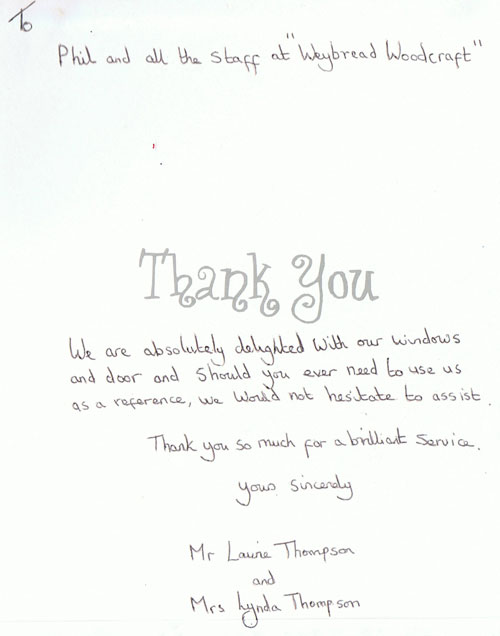 To
Phil and all the staff at "Weybread Woodcraft"
Thank You
We are absolutely delighted with our windows
and door and should you ever need to use us
as a reference, we would not hesitate to assist.
Thank you so much for a brilliant service.
yours sincerely
Mr Laurie Thompson
and
Mrs Lynda Thompson